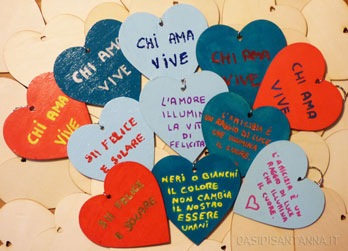 CHI AMA
VIVE
CHI AMA
VIVE
CHI AMA
VIVE
CHI AMA
VIVE
CHI AMA
VIVE
L'AMORE
ILLUMINA
LA VITA
DI
FELICITÀ
L'AMICIZIA È
UN RAGGIO DI LUCE
CHE ILLUMINA
IL CUORE.
SII FELICE
E SOLARE
SII FELICE
E SOLARE
NERI O BIANCHI
IL COLORE
NON CAMBIA
IL NOSTRO
ESSERE
UMANI
L'AMICIZIA È UN
RAGGIO DI LUCE
CHE ILLUMINA
IL CUORE.
OASIDISANTANNA.IT